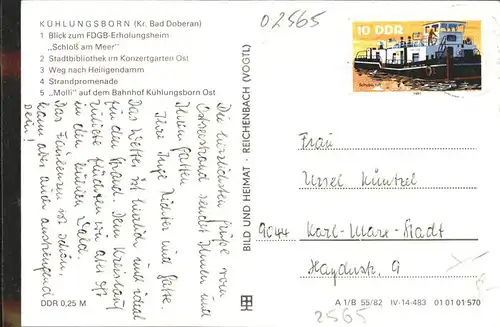 KÜHLUNGSBORN (Kr. Bad Doberan)
1 Blick zum FDGB-Erholungsheim
„Schloß am Meer"
2 Stadtbibliothek im Konzertgarten Ost
3 Weg nach Heiligendamm
4 Strandpromenade
5 „Molli" auf dem Bahnhof Kühlungsborn Ost
02565
10 DDR
Die herzlichsten Grüße vom
Ostseestrand sendet Ihnen und
Ihrem Gatten
Ihre Inge Richter und Gatte.
Das Wetter ist herrlich und ideal
für den Strand. Dem Kreislauf
zuliebe flüchten wir aber oft
in den kühlen Wald.
Das Faulenzen ist schön,
kann aber auch anstrengend
sein!
BILD UND HEIMAT · REICHENBACH (VOGTL)
Frau
Ursel Küntzel
9044 Karl-Marx-Stadt
Haydnstr. 9
DDR 0,25 M
A 1/B 55/82 IV-14-483 01 01 01 570
2565